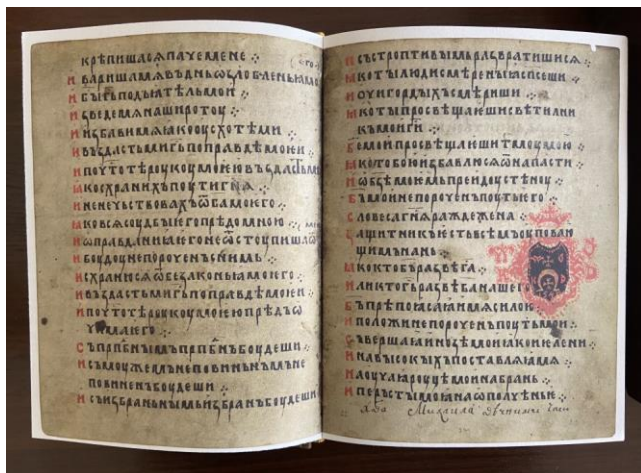 крѣпишасѧ пауе мене ⁘
И вариша мѧ въ дн҃ь ѡзлобленьꙗ мо
И бꙑ г҃ь подъꙗтель мои
И зведе мѧ на широтоу ⁘
И избави мѧ ꙗко оусхотѣ ми ⁘
И въздасть ми г҃ь по правдѣ моюи ⁘
И по утотѣ роукоу моюю въздасть ми
Ꙗко схранихъ поути г҃нѧ ⁘
И не неуьствовахъ ѿ б҃а моего ⁘
Ꙗко всѧ соудбꙑ его предо мною ⁘
И ѡправданьꙗ его не ѿстоупиша ѿ
И боудоу непороуенъ с нимь ⁘
И схранюсѧ ѿ безаконьꙗ моего ⁘
И въздасть ми г҃ь по правдѣ моюи ⁘
И по утотѣ роукоу моюю предъ ѡ
уима его ⁘
Съ прпбнꙑмь прпбнъ боудеши ⁘
И съ моужемь неповиньнъмь не
повиненъ боудеши ⁘
И съ избранꙑмь избранъ боудеши
И съ строптивꙑмь развратишисѧ
Ꙗко тꙑ люди смѣренꙑꙗ сп҃сеши
И оуи гордꙑхъ смѣриши ⁘
Ꙗко тꙑ просвѣщаюши свѣтилни
къ мои г҃и ⁘
Б҃е мои просвѣщаюши тмоу мою ⁘
Ꙗко тобою избавлюсѧ ѿ напасти
И ѡ б҃зѣ моюмь преидоу стѣноу ⁘
Б҃ъ мои непороуенъ поуть его ⁘
Словеса г҃нѧ раждежена ⁘
Защитникъ есть всѣмъ оуповаю
щимъ на нь ⁘
Ꙗко кто б҃ъ развѣ г҃а ⁘
Или кто б҃ъ развѣ б҃а нашего ⁘
Б҃ъ препоꙗсаꙗ мѧ силою ⁘
И положи непороуенъ поуть мои ⁘
Свершаꙗ нозѣ мои ꙗко юлени ⁘
И на вꙑсокꙑхъ поставлꙗꙗ мѧ ⁘
Науаꙗ роуцѣ мои на брань ⁘
И перстꙑ моꙗ на ѡполуѣнью ⁘
Михаила